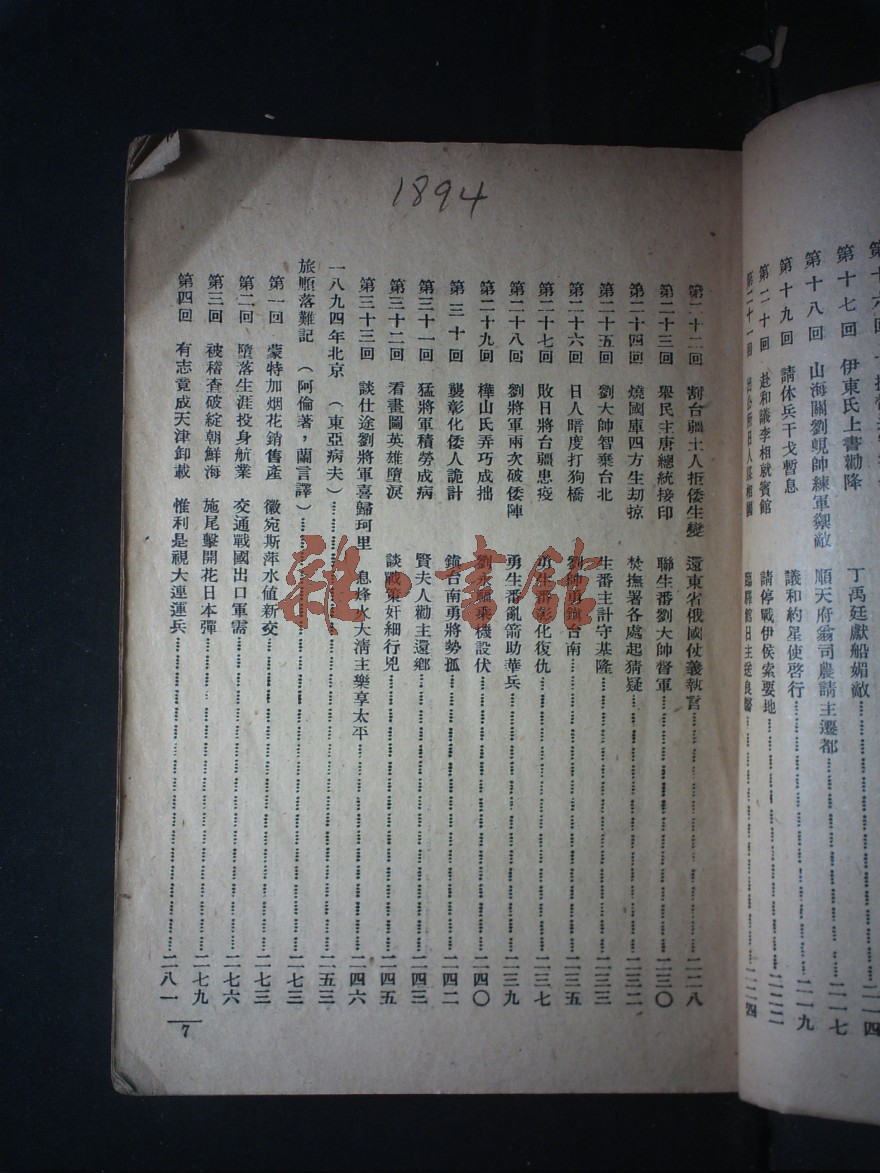 第十七回 伊東氏上書勸降 丁禹廷獻船媚敵 二一七
第十八回 山海關劉峴帥練軍禦敵 順天府翁司農請主遷都
第十九回 請休兵干戈暫息 議和約星使啓行 二一九
第二十回 赴和議李相就賓館 請停戰伊侯索要地 二二二
第二十一回 二二四
1894
第二十二回 割台疆土人拒倭生變 還東省俄國仗義執言 二二八
第二十三回 舉民主唐總統接印 聯生番劉大帥督軍 二三〇
第二十四回 燒國庫四方生劫掠 焚撫署各處起猜疑 二三二
第二十五回 劉大帥智棄台北 生番主計守基隆 二三三
第二十六回 日人暗度打狗橋 劉帥勇鎮台南 二三五
第二十七回 敗日將台疆患疫 勇生番彰化復仇 二三七
第二十八回 劉將軍兩次破倭陣 勇生番亂箭助華兵 二三九
第二十九回 樺山氏弄巧成拙 劉永福乘機設伏 二四〇
第三十回 襲彰化倭人詭計 鎮台南勇將勢孤 二四二
第三十一回 猛將軍積勞成病 賢夫人勸主還鄉 二四三
第三十二回 看畫圖英雄墮淚 談戰策奸細行兇 二四五
第三十三回 談仕途劉將軍喜歸珂里 息烽火大清主樂享太平 二四六
一八九四年北京 (東亞病夫) 二五三
旅順落難記 (阿倫著,蘭言譯) 二七三
第一回 蒙特加烟花銷售產 徽宛斯萍水値新交 二七三
第二回 墮落生涯投身航業 交通戰國出口軍需 二七六
第三回 被稽查破綻朝鮮海 施尾擊開花日本彈 二七九
第四回 有志竟成天津卸載 惟利是視大連運兵 二八一
7